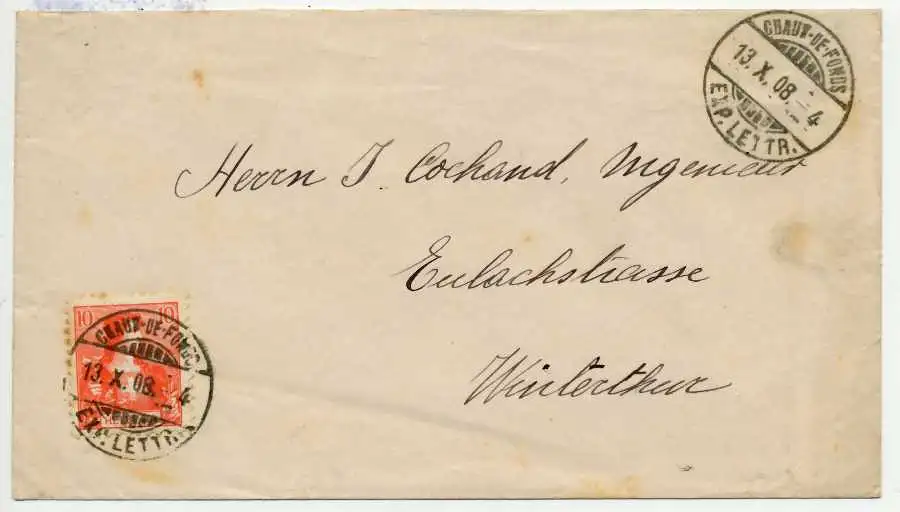 CHAUX-DE-FONDS
13. X. 08. - 4
EXP. LETTR.
Herrn J. Cochand, Ingenieur
Eulachstrasse
Winterthur
10 10
CHAUX-DE-FONDS
13. X. 08. - 4
EXP. LETTR.